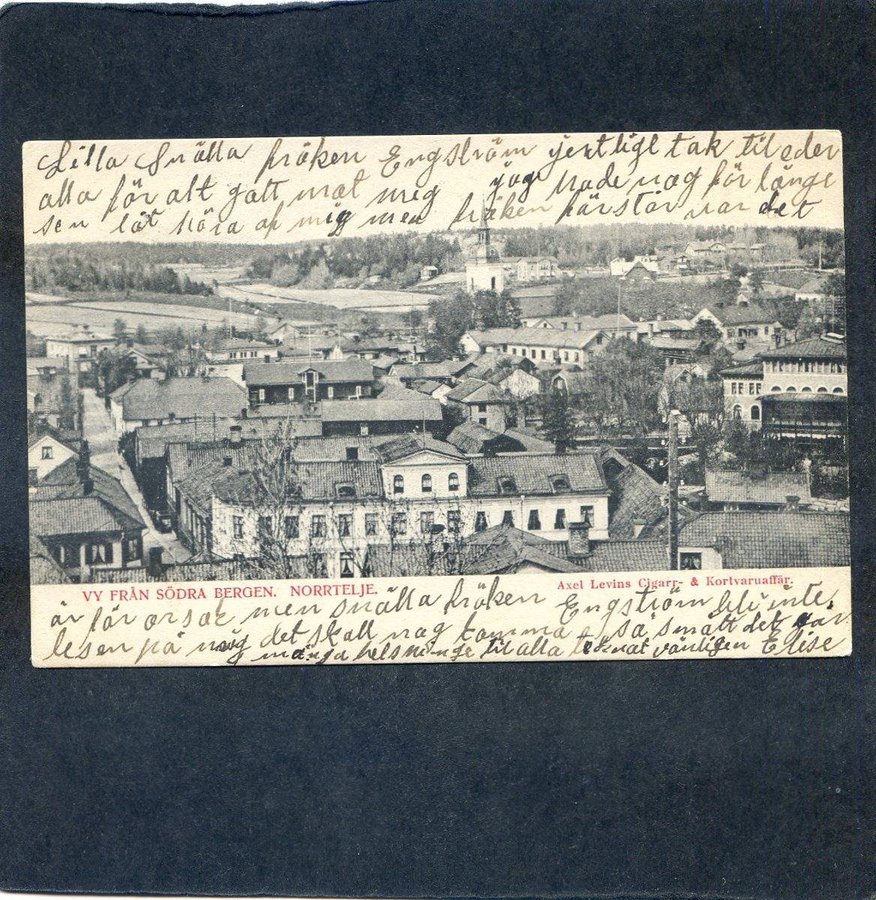 Lilla Snälla fröken Engström jertligt tak til eder
alla för alt gått mot mig jag hade nog för länge
sen låt höra af mig men fröken förstor var det
VY FRÅN SÖDRA BERGEN. NORRTELJE.
Axel Levins Cigarr- & Kortvaruaffär.
är för orsak men snälla fröken Engström bli inte
lesen på mig det skall nog komma så smått det
många helsninge til alla vänligen Elise